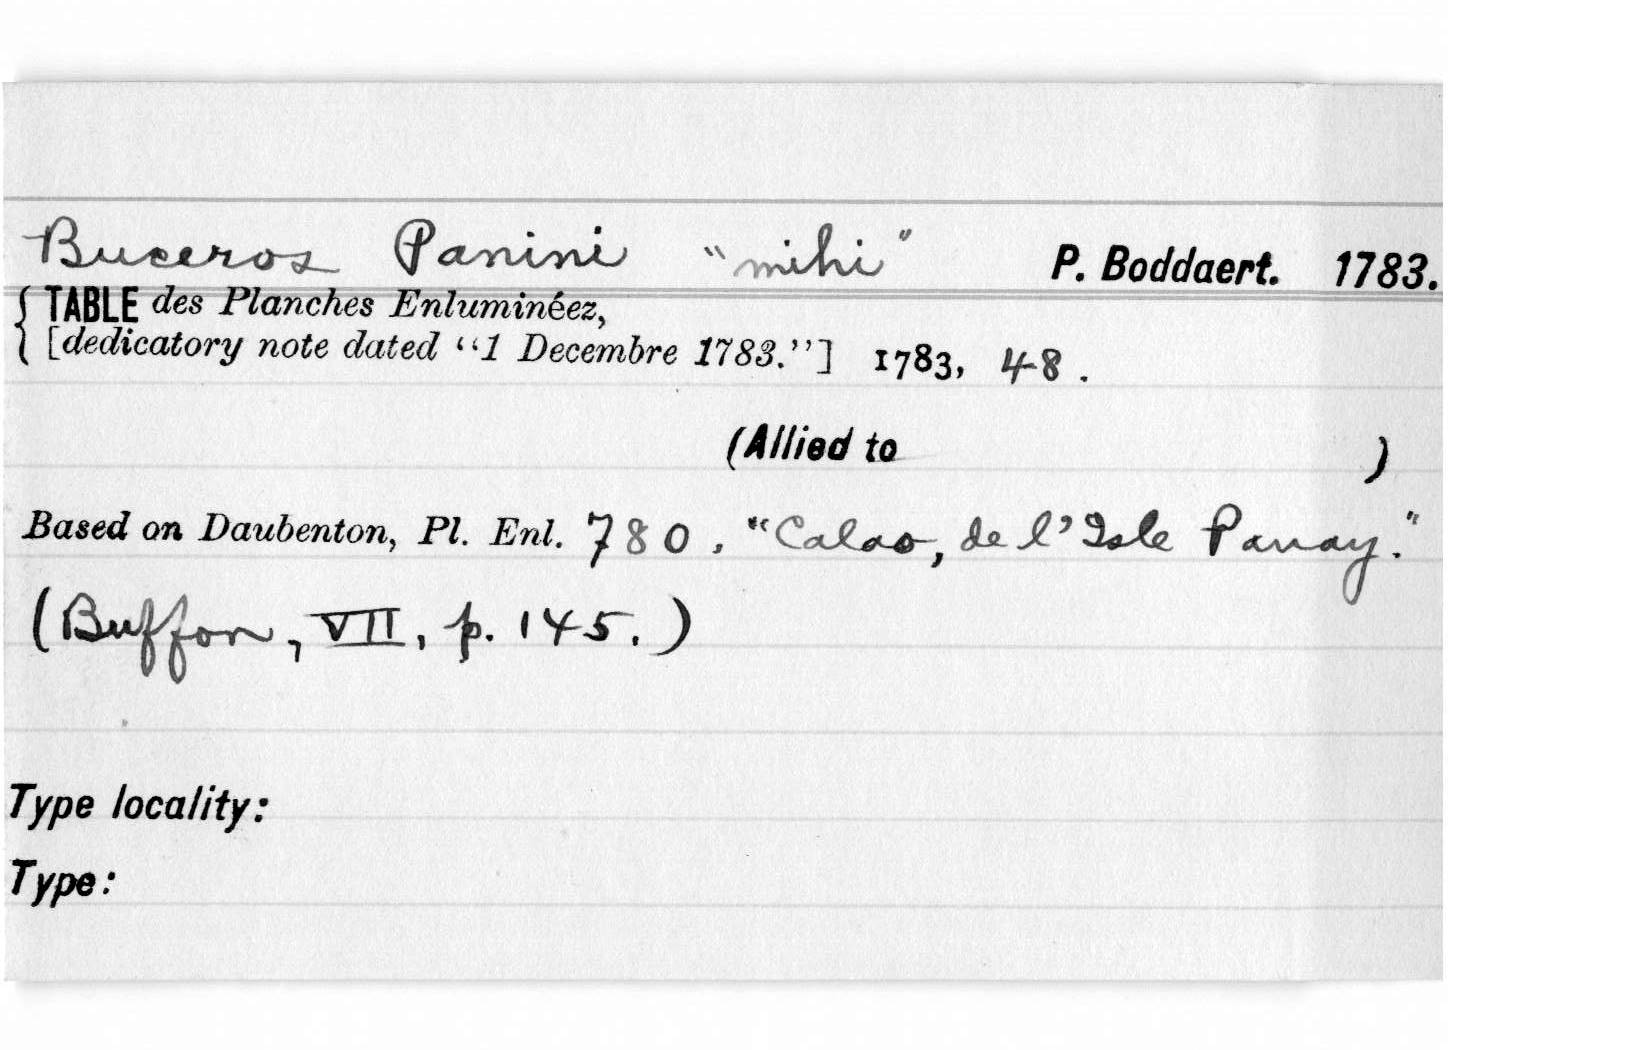 Buceros Panini "mihi" P. Boddaert. 1783.
{ TABLE des Planches Enluminéez,
[dedicatory note dated “1 Decembre 1783.”] 1783, 48.
(Allied to )
Based on Daubenton, Pl. Enl. 780. "Calao, de l'Isle Panay."
(Buffon, VII, p. 145.)
Type locality:
Type: